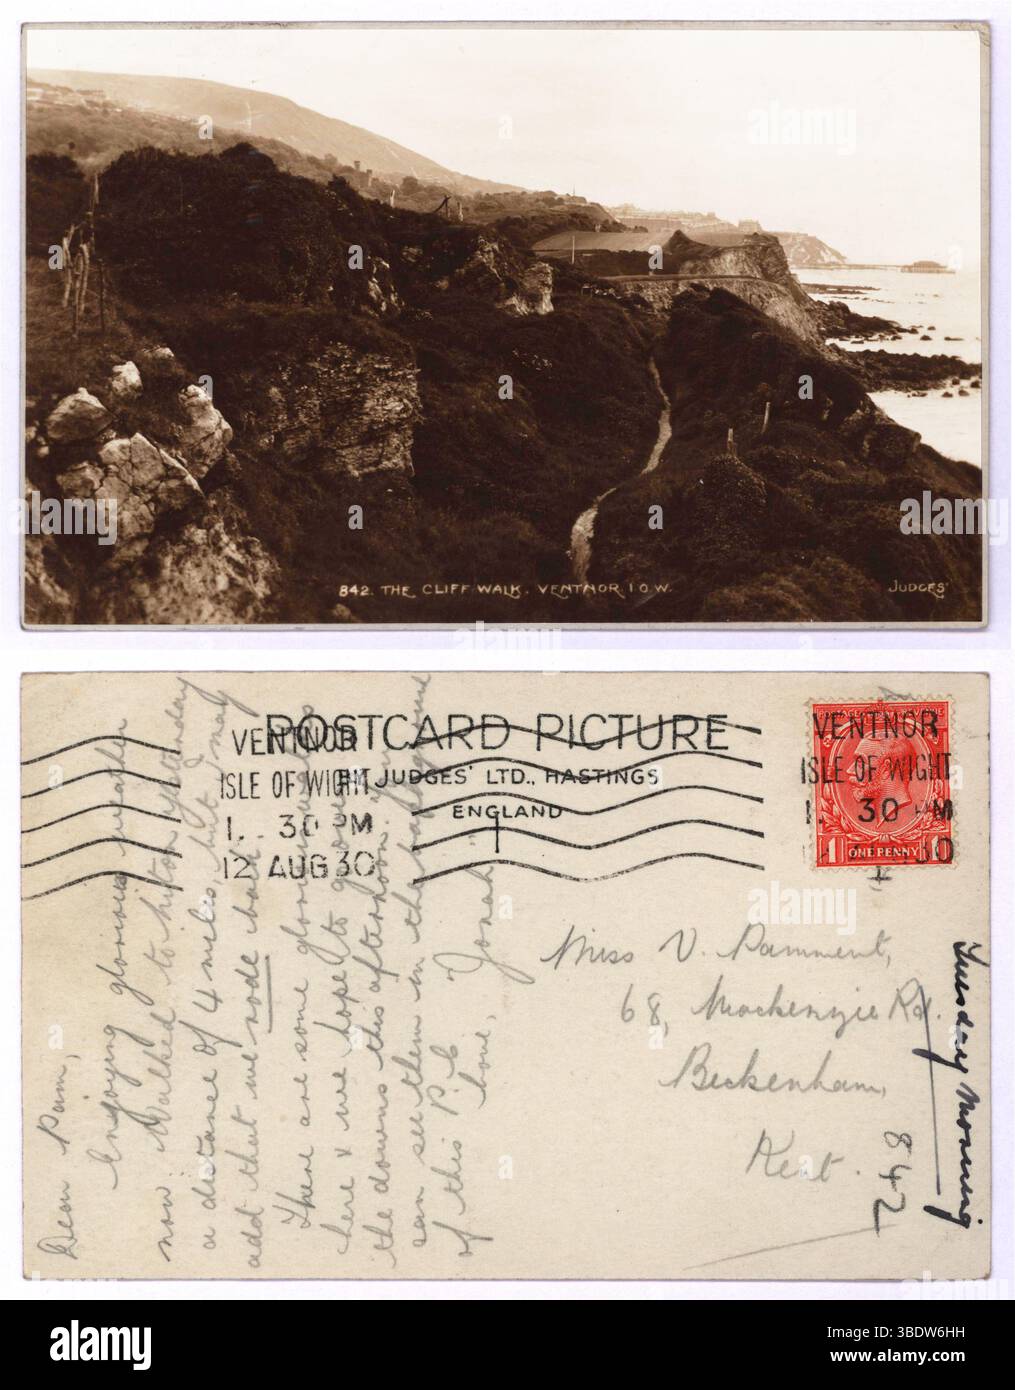 842. THE CLIFF WALK. VENTNOR I.O.W.
JUDGES'
POSTCARD PICTURE
BY JUDGES' LTD., HASTINGS
ENGLAND
VENTNOR
ISLE OF WIGHT
1. 30 PM
12 AUG 30
VENTNOR
ISLE OF WIGHT
1. 30 PM
30
1 ONE PENNY
Dear Pam,
Enjoying glorious weather
now. Walked to Niton yesterday
a distance of 4 miles, but I may
add that we rode back.
There are some glorious walks
here & we hope to go over
the downs this afternoon. You
can see them in the background
of this P.C.
love,
Miss V. Pamment,
68, Mackenzie Rd.
Beckenham,
Kent.
Tuesday Morning
842
alamy
alamy
Image ID: 2BD6W6HH
www.alamy.com